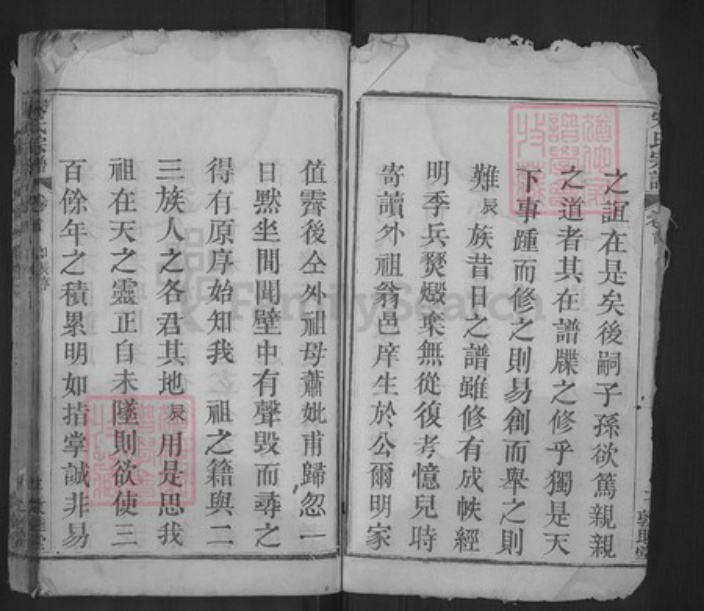 之誼在是矣後嗣子孫欲篤親親
之道者其在譜牒之修乎獨是天
下事踵而修之則易創而舉之則
難辰族昔日之譜雖修有成帙經
明季兵燹燬棄無從復考憶兒時
寄讀外祖翁邑庠生於公爾明家
值霽後仝外祖母蕭妣甫歸忽一
日默坐間聞壁中有聲毀而尋之
得有原序始知我 祖之籍與二
三族人之各君其地辰用是思我
祖在天之靈正自未墜則欲使三
百餘年之積累明如指掌誠非易
氏宗譜
FamilySearch